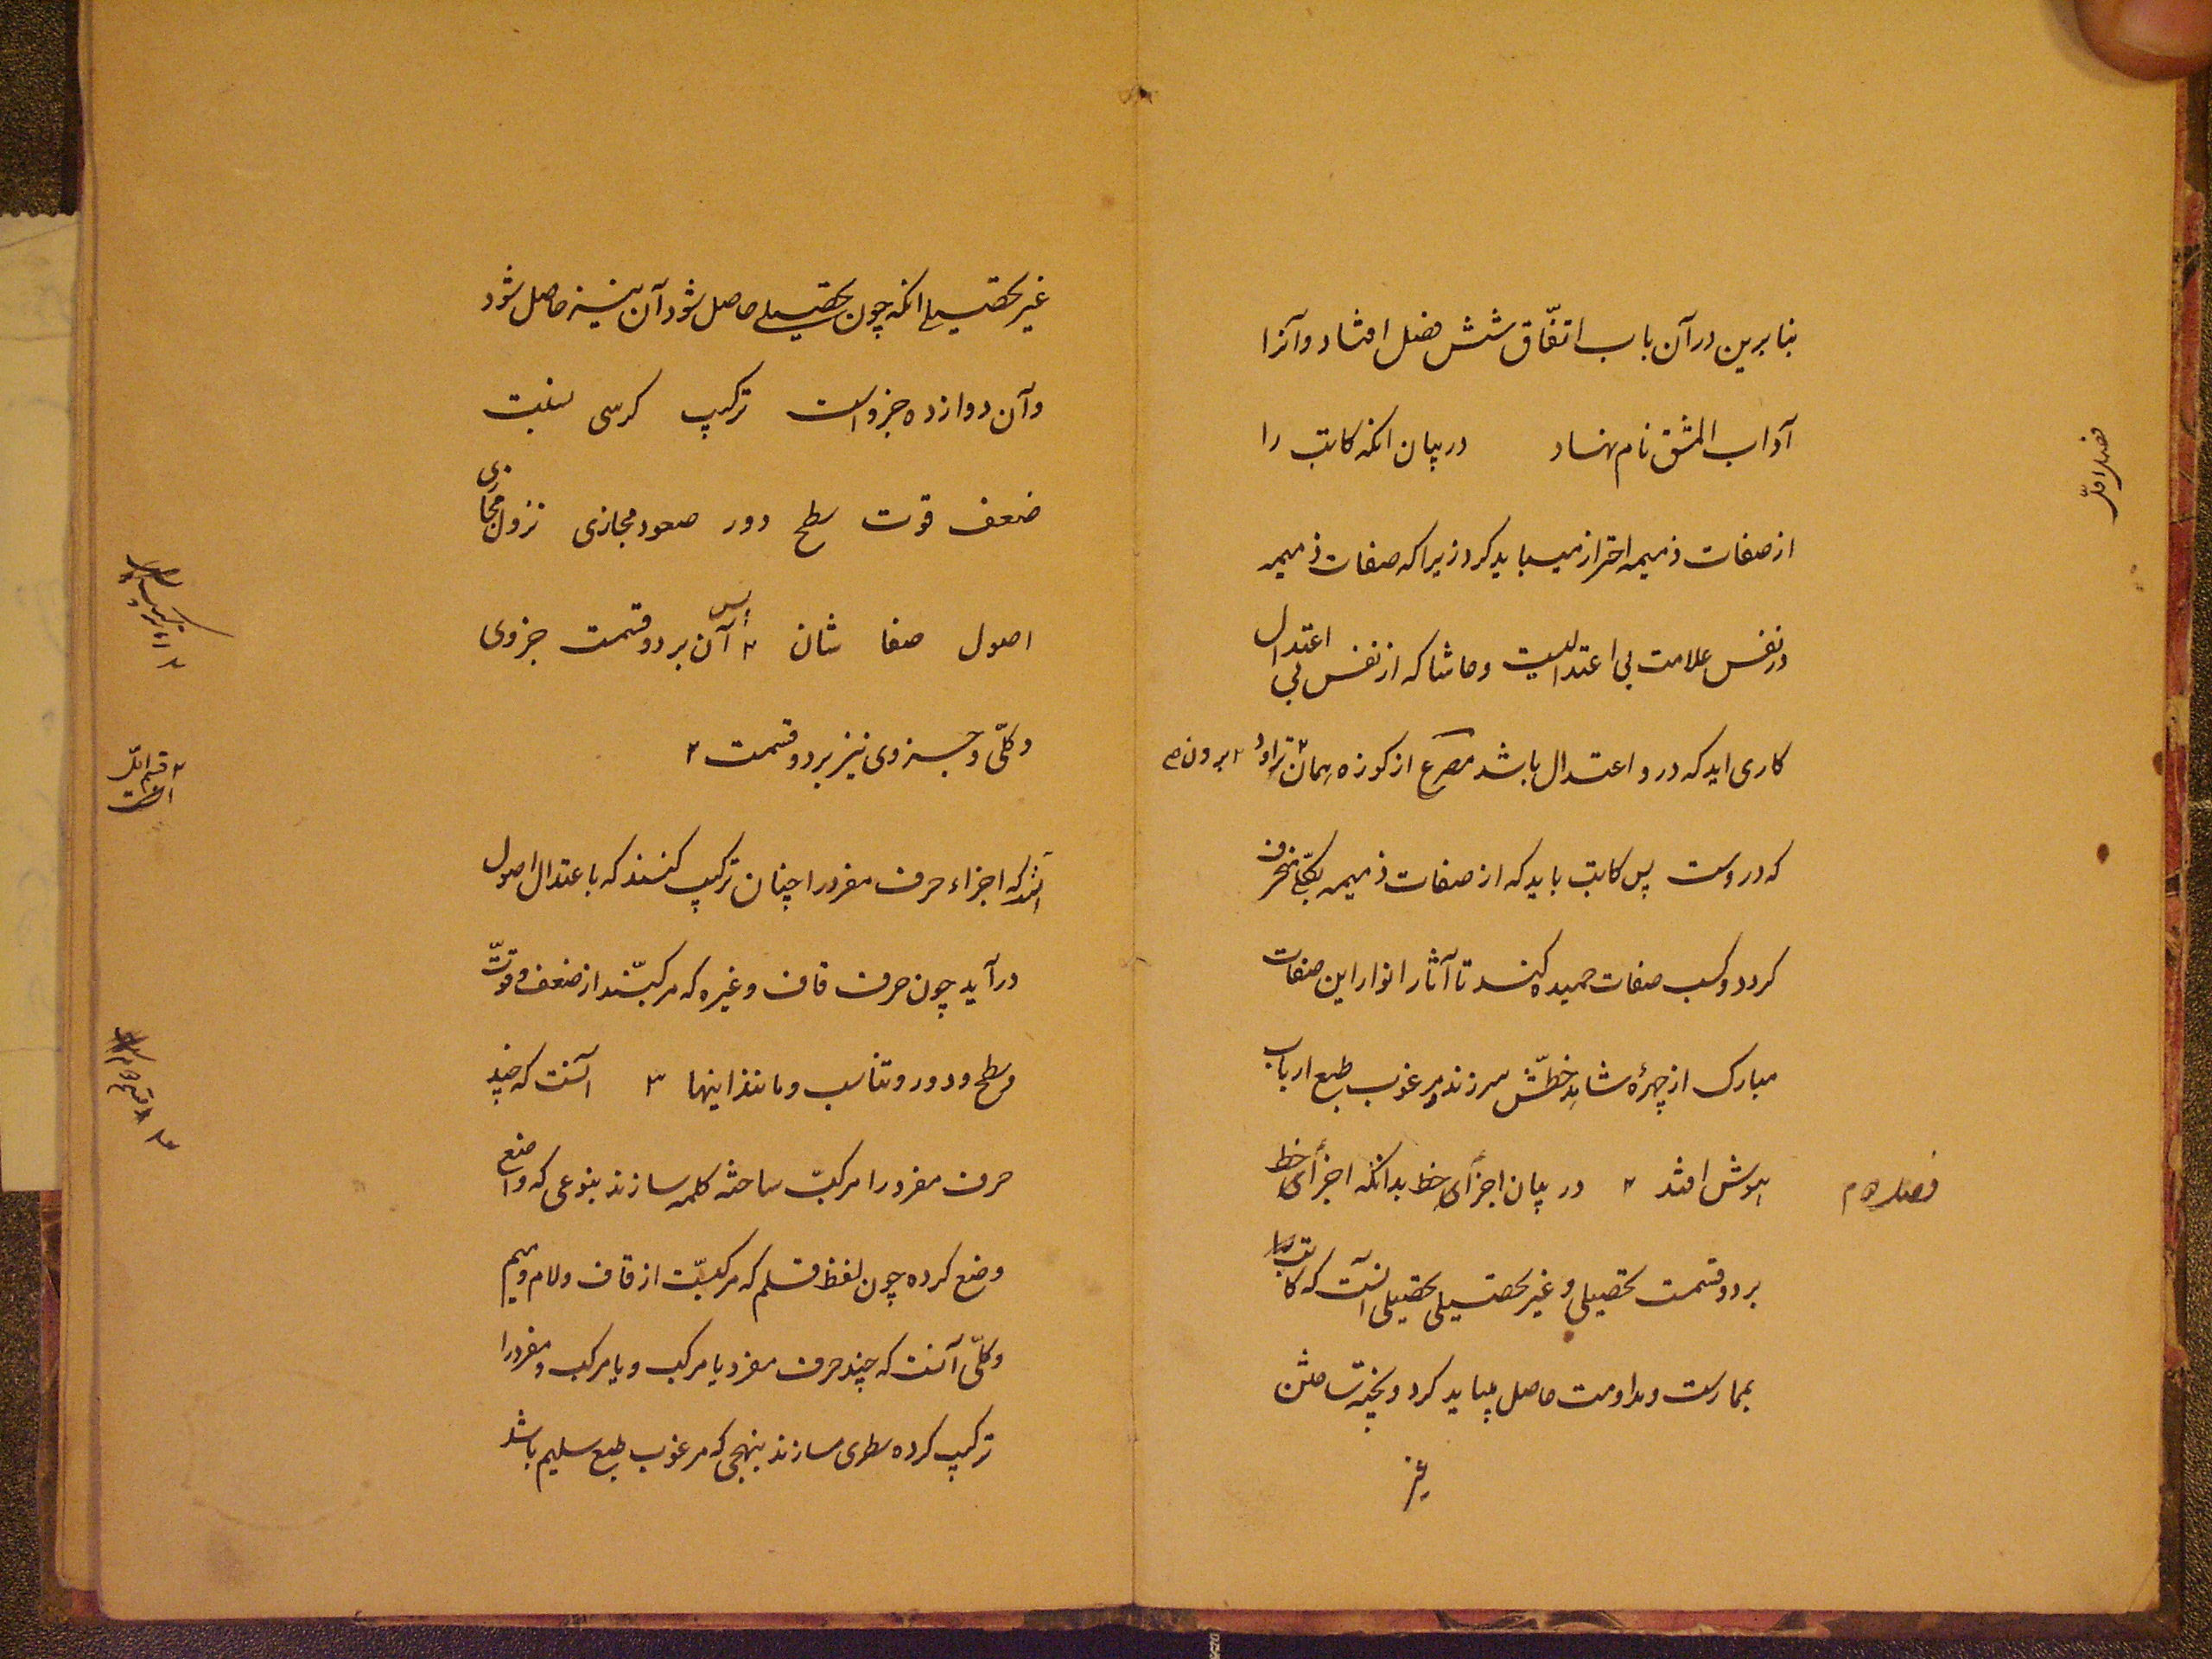 بنابرین در آن باب اتفّاق شش فصل افتاد و آنرا
فصل اوّل
آداب المشق نام نهاد در بیان انکه کاتب را
از صفات ذمیمه احتراز میباید کرد زیرا که صفات ذمیمه
در نفس علامت بی اعتدالیست و حاشا که از نفس بی اعتدال
کاری اید که درو اعتدال باشد مصرع از کوزه همان برون تراود
که دروست پس کاتب باید که از صفات ذمیمه بکلّی منحرف
کردد و کسب صفات حمیده کند تا آثار انوار این صفات
مبارک از چهرهٔ شاهد خطّش سرزند و مرغوب طبع ارباب
فصل دوم
هوش افتد ۲ در بیان اجزای خط بدانکه اجزای خط
بر دو قسمت تحصیلی و غیر تحصیلی تحصیلی آنست که کاتب را
بممارست و مداومت حاصل میباید کرد و
غیر
غیر تحصیلی انکه چون تحصیلی حاصل شود آن نیز حاصل شود
و آن دوازده جزو است ترکیب کرسی نسبت
ضعف قوت سطح دور صعود مجازی نزول مجازی
اصول صفا شان ۲ آن بر دو قسمت جزوی
و کلّی و جزوی نیز بر دو قسمت ۲
قسم اوّل
آنست
انست که اجزاء حرف مفرد را چنان ترکیب کنند که باعتدال اصول
درآید چون حرف قاف و غیره که مرکبّند از ضعف و قوّت
و سطح و دور و تناسب و مانند اینها ۳ آنست که چند
حرف مفرد را مرکبّ ساخته کلمه سازند بنوعی که واضع
وضع کرده چون لفظ قلم که مرکبّست از قاف و لام و میم
و کلّی آنست که چند حرف مفرد یا مرکب و یا مرکب و مفرد را
ترکیب کرده سطری سازند بنهجی که مرغوب طبع سلیم باشد